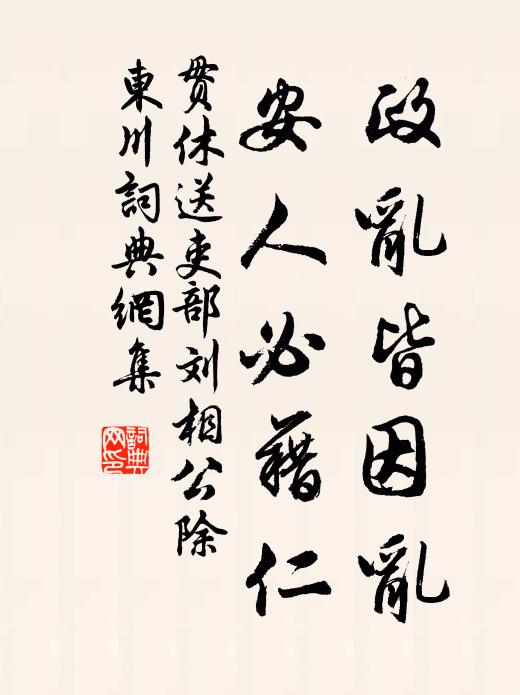 政亂皆因亂
安人必藉仁
贯休送吏部刘相公除
東川詞典網集
詞典
网印